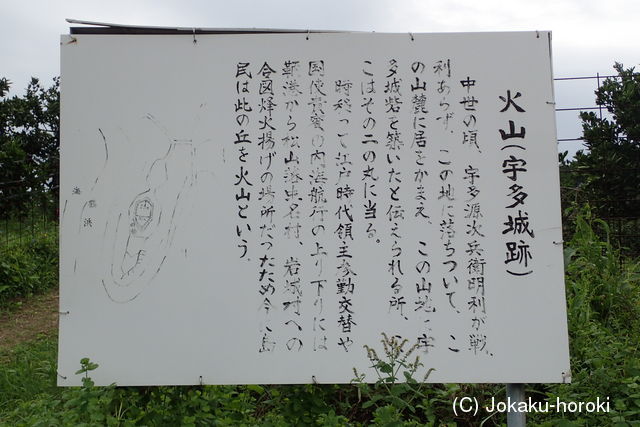 火山(宇多城跡)
中世の頃、宇多源次兵衛明利が戦、
利あらず、この地に落ちついて、こ
の山麓に居をかまえ、この山地に宇
多城砦を築いたと伝えられる所、
こはその二の丸に当る。
時移って江戸時代領主参勤交替や
国使貴賓の内海航行の上り下りには
鞆港から松山藩忠名村、岩城村への
合図烽火揚げの場所だったため今に島
民は此の丘を火山という。
浜
(C) Jokaku-horoki